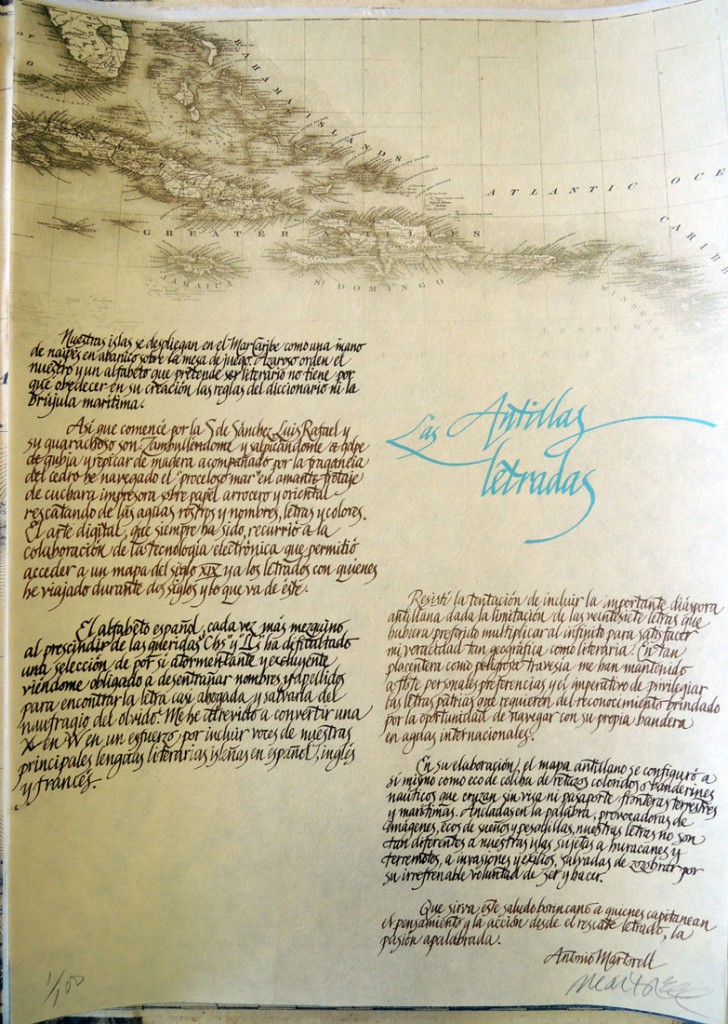 BAHAMA ISLANDS
ATLANTIC OCE
CARIB
GREATER ANTILLES
JAMAICA
St DOMINGO
LESSER
Nuestras islas se despliegan en el Mar Caribe como una mano
de naipes en abanico sobre la mesa de juego. Azaroso orden el
nuestro y un alfabeto que pretende ser literario no tiene por
que obedecer en su creación las reglas del diccionario ni la
brújula marítima.
Así que comencé por la S de Sánchez, Luis Rafael y
su guarachoso son. Zambulléndome y salpicándome a golpe
de gubia y repicar de madera acompañado por la fragancia
del cedro he navegado el "proceloso mar" en amante frotaje
de cuchara impresora sobre papel arrocero y oriental
rescatando de las aguas rostros y nombres, letras y colores.
El arte digital, que siempre ha sido, recurrió a la
colaboración de la tecnología electrónica que permitió
acceder a un mapa del siglo XIX y a los letrados con quienes
he viajado durante dos siglos y lo que va de éste.
El alfabeto español, cada vez más mezquino
al prescindir de las queridas "Chs" y "Ll" ha dificultado
una selección de por si atormentante y excluyente
viéndome obligado a desentrañar nombres y apellidos
para encontrar la letra casi ahogada y salvarla del
naufragio del olvido. Me he atrevido a convertir una
X en W en un esfuerzo por incluir voces de nuestras
principales lenguas literarias isleñas en español, inglés
y francés.
Las Antillas
letradas
Resistí la tentación de incluir la importante diáspora
antillana dada la limitación de las veintisiete letras que
hubiera preferido multiplicar al infinito para satisfacer
mi voracidad tan geográfica como literaria. En tan
placentera como peligrosa travesía me han mantenido
a flote personales preferencias y el imperativo de privilegiar
las letras patrias que requieren del reconocimiento brindado
por la oportunidad de navegar con su propia bandera
en aguas internacionales.
En su elaboración, el mapa antillano se configuró a
sí mismo como eco de colcha de retazos coloridos o banderines
naúticos que cruzan sin visa ni pasaporte fronteras terrestres
y marítimas. Ancladas en la palabra, provocadoras de
imágenes, ecos de sueños y pesadillas, nuestras letras no son
tan diferentes a nuestras islas sujetas a huracanes y
terremotos, a invasiones y exilios, salvadas de zozobrar por
su irrefrenable voluntad de ser y hacer.
Que sirva este saludo borincano a quienes capitanean
el pensamiento y la acción desde el rescate letrado, la
pasión apalabrada.
Antonio Martorell
1/100
Martorell